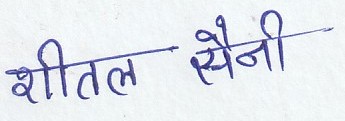 शीतल सैनी